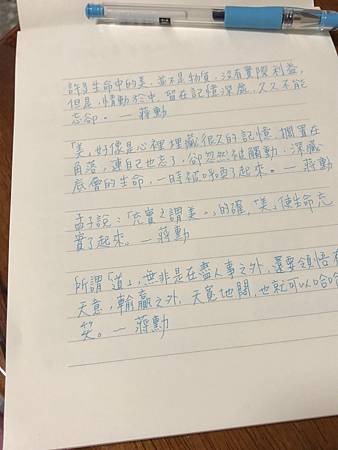 許多生命中的美，並不是物質，沒有實際利益，
但是，情動於中，留在記憶深處，久久不能
忘卻。— 蔣勳
「美」好像是心裡埋藏很久的記憶 擱置在
角落，連自己也忘了，卻忽然被觸動，深藏
底層的生命，一時被喚了起來。— 蔣勳
孟子說：「充實之謂美。」的確，「美」使生命充
實了起來。— 蔣勳
所謂「道」，無非是在盡人事之外，還要領悟有
天意，輸贏之外，天寬地闊，也就可以哈哈
笑。— 蔣勳